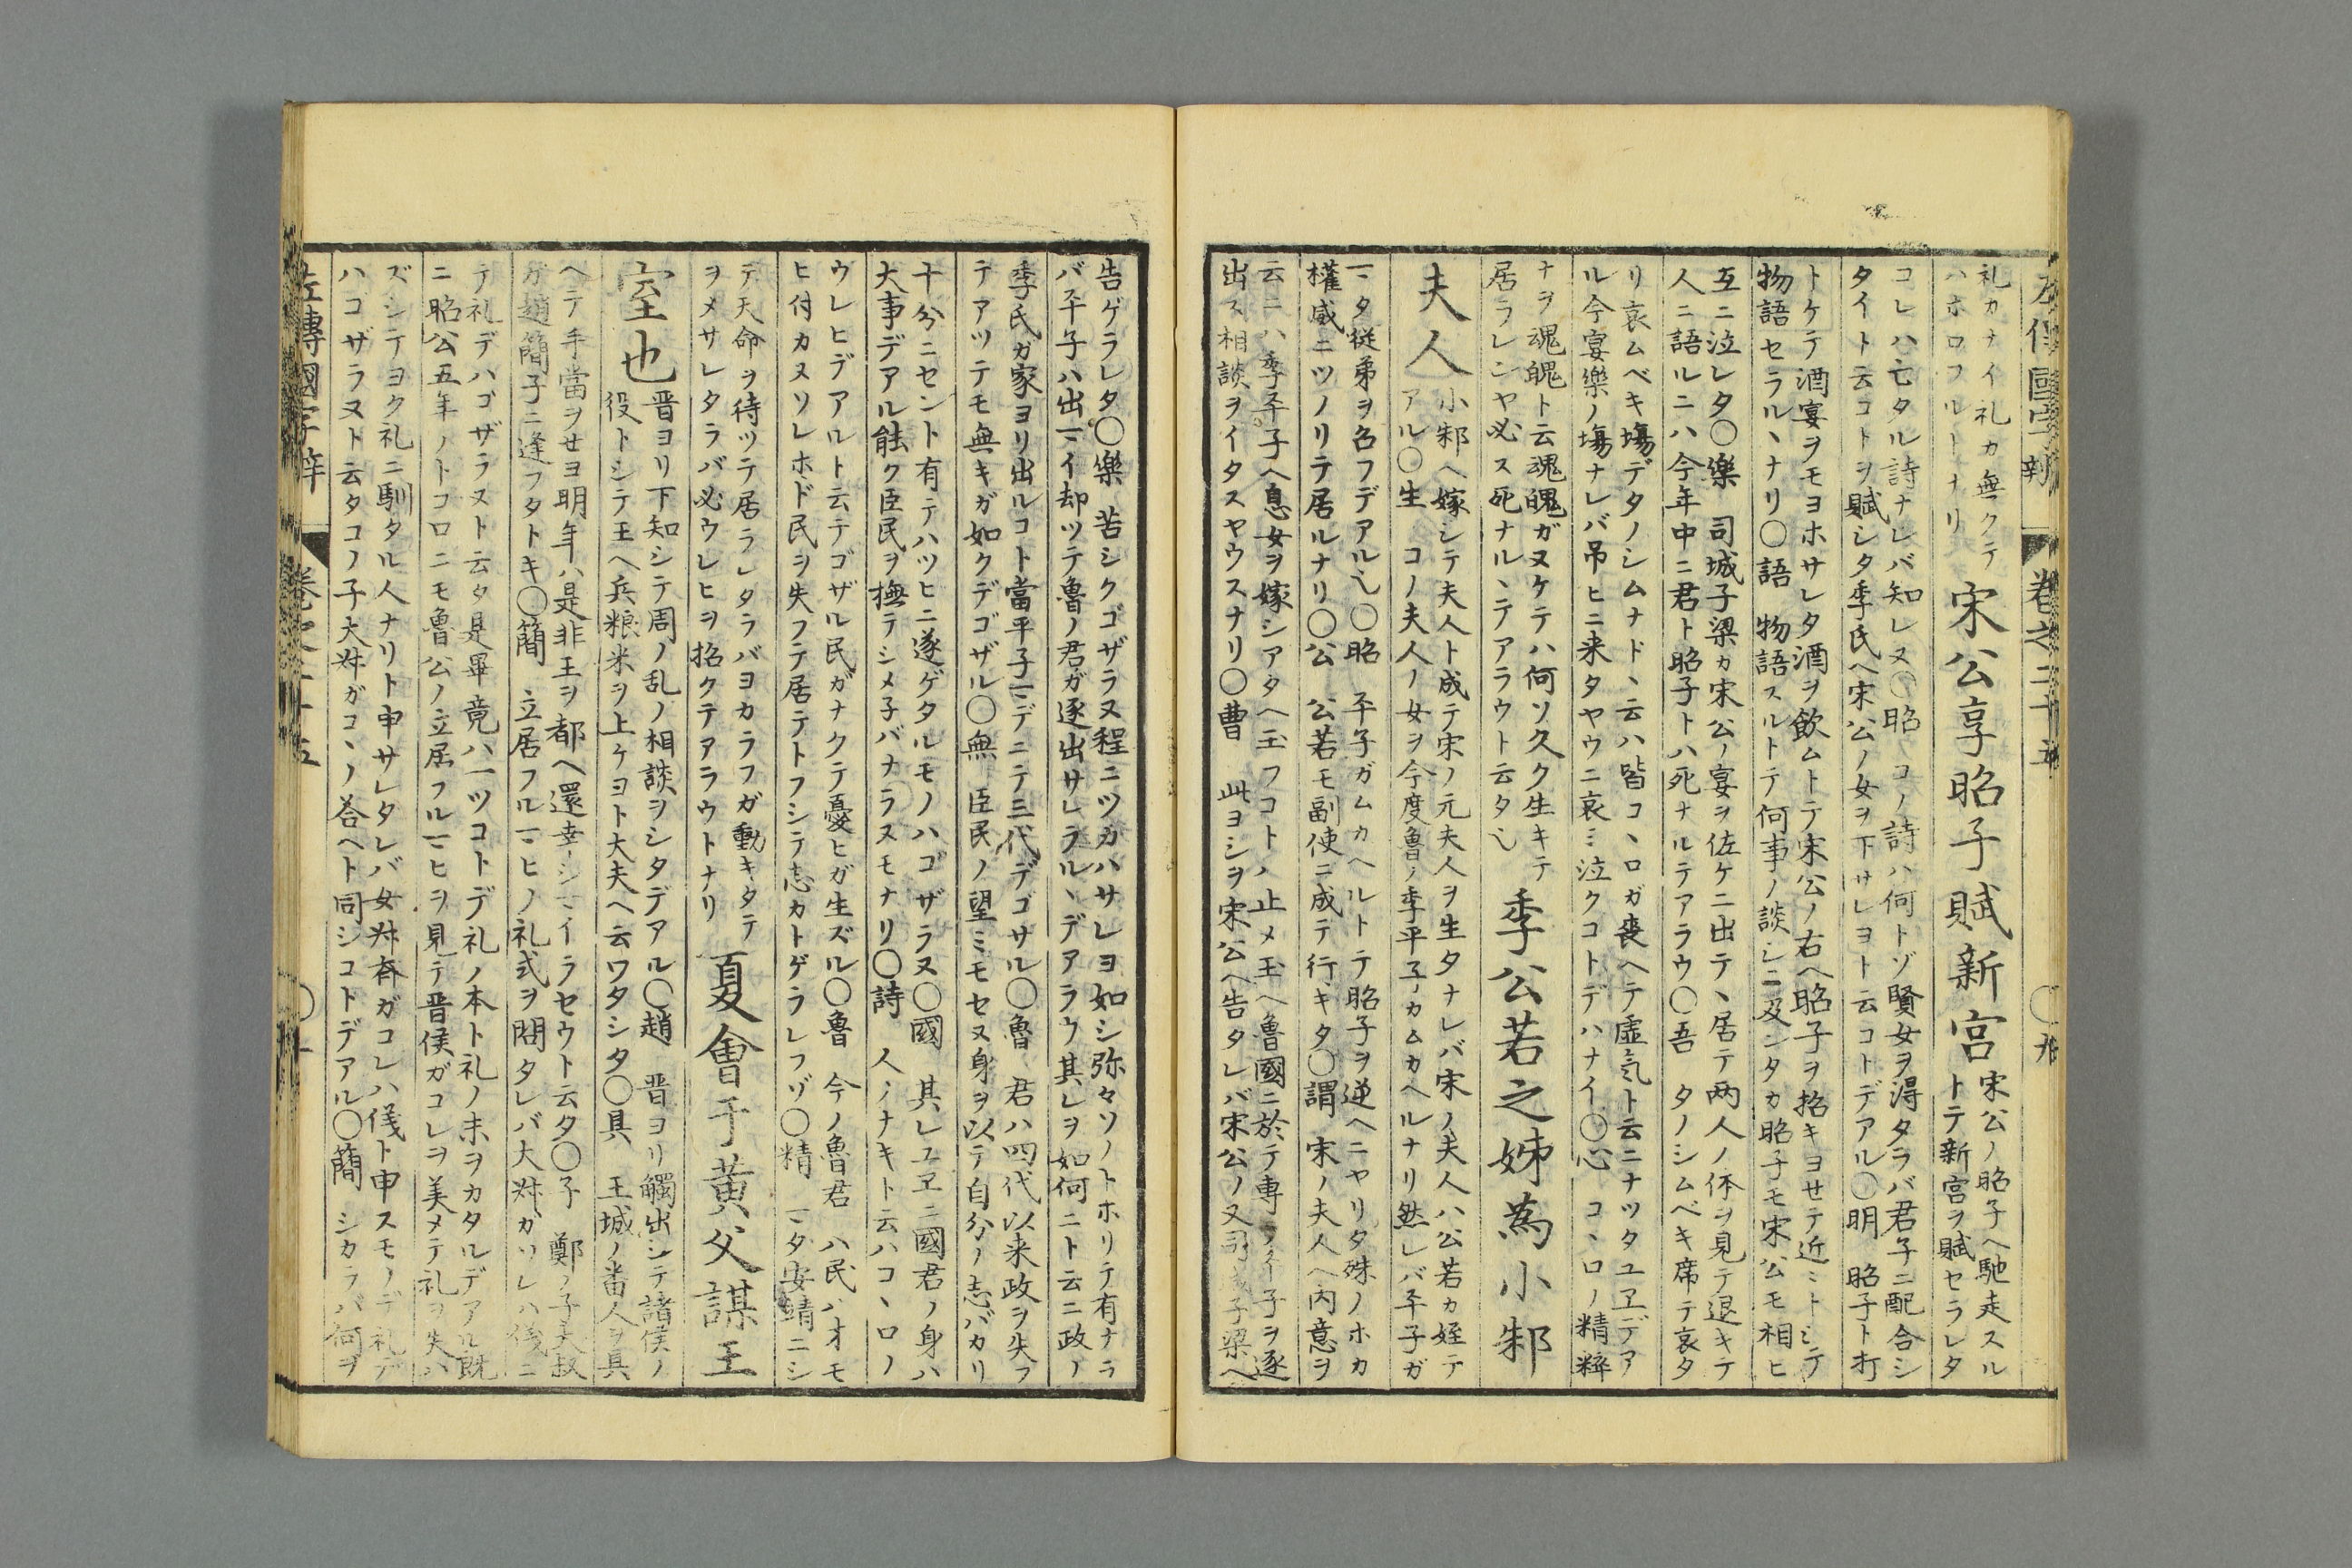 左傳國字辨 卷之二十五 〇九
礼カナイ礼カ無クテ
ハホロフルトナリ
宋公享昭子賦新宮
宋公ノ昭子ヘ馳走スル
トテ新宮ヲ賦セラレタ
コレハ亡タル詩ナレバ知レヌ〇昭 コノ詩ハ何トゾ賢女ヲ淂タラバ君子ニ配合シ
タイト云コトヲ賦シタ季氏ヘ宋公ノ女ヲ下サレヨト云コトデアル〇明 昭子ト打
トケテ酒宴ヲモヨホサレタ酒ヲ飲ムトテ宋公ノ右ヘ昭子ヲ招キヨセテ近ミトシテ
物語セラルヽナリ〇語 物語スルトテ何事ノ談シニ及ンタカ昭子モ宋公モ相ヒ
互ニ泣レタ〇樂 司城子梁カ宋公ノ宴ヲ佐ケニ出テヽ居テ两人ノ体ヲ見テ退キテ
人ニ語ルニハ今年中ニ君ト昭子トハ死ナルテアラウ〇吾 タノシムベキ席テ哀タ
リ哀ムベキ塲デタノシムナドヽ云ハ皆コヽロガ喪ヘテ虚気ト云ニナツタユヱデア
ル今宴樂ノ塲ナレバ吊ヒニ来タヤウニ哀ミ泣クコトデハナイ〇心 コヽロノ精粹
ナヲ魂魄ト云魂魄ガヌケテハ何ソ久ク生キテ
居ラレンヤ必ス死ナルヽテアラウト云タ
季公若之姊為小邾
夫人
小邾ヘ嫁シテ夫人ト成テ宋ノ元夫人ヲ生タナレバ宋ノ夫人ハ公若カ姪テ
アル〇生 コノ夫人ノ女ヲ今度魯ノ季平子カムカヘルナリ然レバ平子ガ
タ従弟ヲ名フデアル〇昭 平子ガムカヘルトテ昭子ヲ逆ヘニヤリタ殊ノホカ
權威ニツノリテ居ルナリ〇公 公若モ副使ニ成テ行キタ〇謂 宋ノ夫人ヘ内意ヲ
云ニハ季平子ヘ息女ヲ嫁シアタヘ玉フコトハ止メ玉ヘ魯國ニ於テ専ラ平子ヲ逐
出ス相談ヲイタスヤウスナリ〇曹 此ヨシヲ宋公ヘ告タレバ宋公ノ又司城子梁ヘ
告ゲラレタ〇樂 苦シクゴザラヌ程ニツカハサレヨ如シ弥々ソノトホリテ有ナラ
バ平子ハ出イ却ツテ魯ノ君ガ逐出サレラルヽデアラウ其レヲ如何ニト云ニ政ノ
季氏ガ家ヨリ出ルコト當平子デニテ三代デゴサル〇魯 君ハ四代以来政ヲ失フ
テアツテモ無キガ如クデゴザル〇無 臣民ノ望ミモセヌ身ヲ以テ自分ノ志バカリ
十分ニセント有テハツヒニ遂ゲタルモノハゴザラヌ〇國 其レユヱニ國君ノ身ハ
大事デアル能ク臣民ヲ撫テシメ子バナラヌモナリ〇詩 人ノナキト云ハコヽロノ
ウレヒデアルト云テゴザル民ガナクテ憂ヒガ生ズル〇魯 今ノ魯君ハ民ハオモ
ヒ付カヌソレホド民ヲ失フテ居テトフシテ志カトゲラレフゾ〇精 タ安靖ニシ
テ天命ヲ待ツテ居ラレタラバヨカラフガ動キタテ
ヲメサレタラバ必ウレヒヲ招クテアラウトナリ
夏會于黃父謀王
室也
晋ヨリ下知シテ周ノ乱ノ相談ヲシタデアル〇趙 晋ヨリ觸出シテ諸侯ノ
役トシテ王ヘ兵粮米ヲ上ケヨト大夫ヘ云ワタシタ〇具 王城ノ畨人ヲ具
ヘテ手當ヲセヨ明年ハ是非王ヲ都ヘ還幸シイラセウト云タ〇子 鄭ノ子大叔
ガ趙簡子ニ逢フタトキ〇簡 立居フルヒノ礼式ヲ問タレバ大叔ガソレハ儀ニ
テ礼デハゴザラヌト云タ是畢竟ハ一ツコトデ礼ノ本ト礼ノ末ヲカタルデアル既
ニ昭公五年ノトコロニモ魯公ノ立居フルヒヲ見テ晋侯ガコレヲ美メテ礼ヲ失ハ
ズシテヨク礼ニ馴タル人ナリト申サレタレバ女叔斉ガコレハ儀ト申スモノデ礼デ
ハゴザラヌト云タコノ子大叔ガコヽノ荅ヘト同シコトデアル〇簡 シカラバ何ヲ
左傳國字辨 卷之二十五 〇十